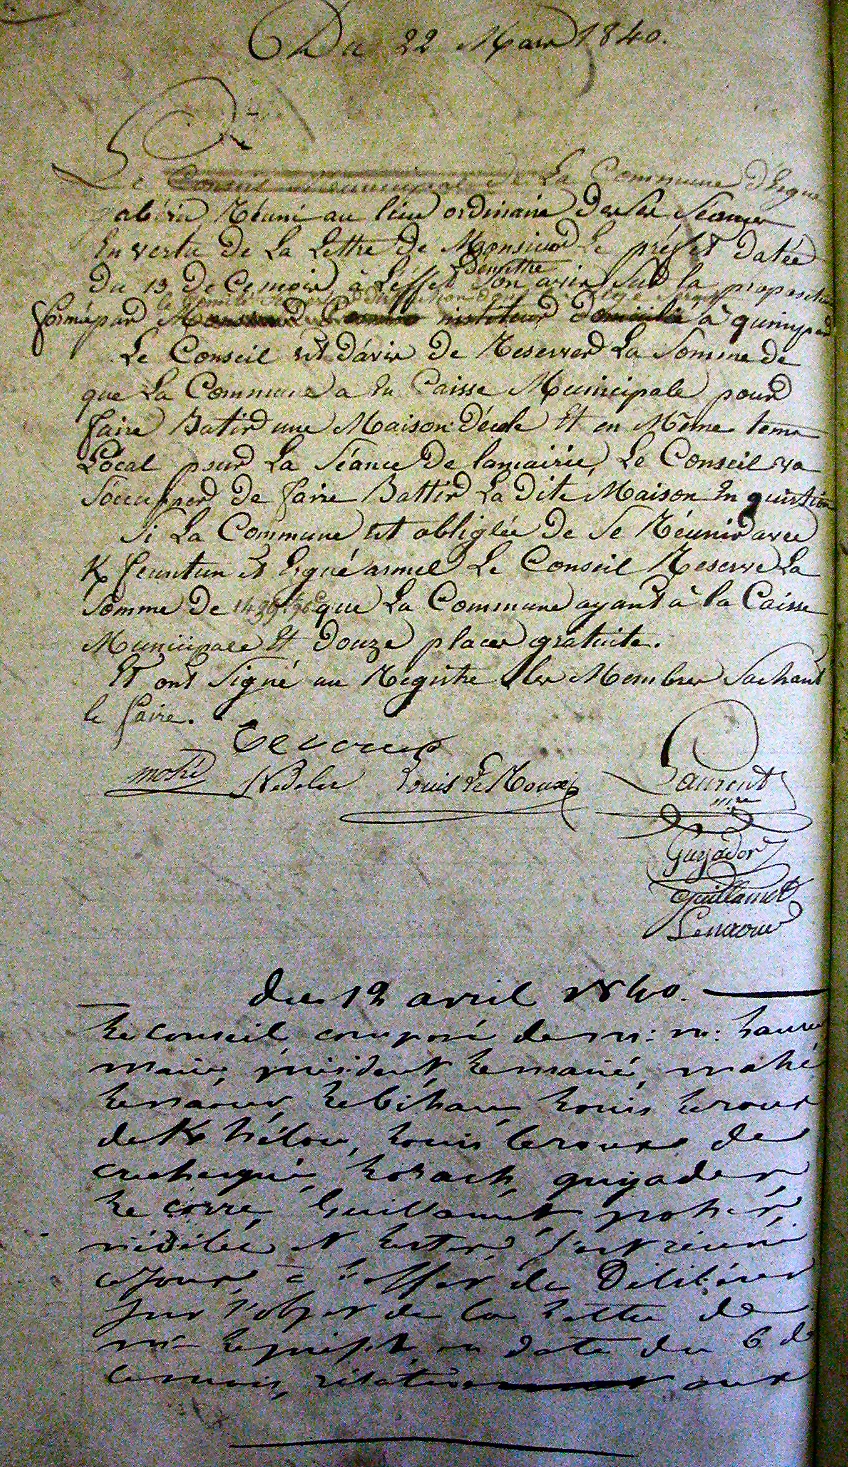 Du 22 Mars 1840.
Le Conseil Municipal de La Commune d'Ergué
gabéric Réuni au lieu ordinaire de ses Séances
En vertu de La Lettre de Monsieur Le préfet datée
du 13 de Ce mois, à L'effet d'emettre Son avis Sur la proposition
formé par instituteur domicilié à quimper
Le Conseil est d'avis de Reserver La Somme de
que La Commune a En Caisse Municipale pour
faire Batir une Maison d'école Et en Même tems
Local pour La Séance de lamairie, Le Conseil va
S'occupper de faire Battir La dite Maison En question
Si La Commune est obligée de Se Réunir avec
K feunteun et Ergué armel Le Conseil Reserve La
Somme de que La Commune ayant à la Caisse
Municipale Et douze places gratuite.
Et ont Signé au Registre les Membres Sachant
le faire.
mahé Nédelec Louis Le Roux Laurent
mre
Guyader
Guillamot
Lenaour
du 12 avril 1840.
Le conseil composé de m: m: Laurent
maire président Lemarié, mahé
Lenaour, Le bihan, Louis Leroux
de K hélou, Louis Leroux de
crechergué, guyader,
Le corre, Guillamot,
nédélec et s'est réuni
ce jour, à l'effet de Délibérer
sur l'objet de la Lettre de
mr Le préfet en date du 6 de
ce mois, relative aux